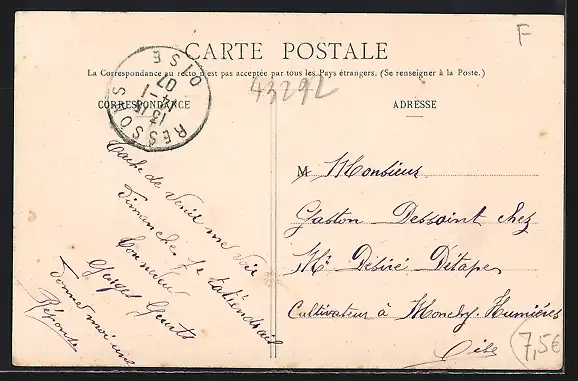 CARTE POSTALE
La Correspondance au recto n'est pas acceptée par tous les Pays étrangers. (Se renseigner à la Poste.)
CORRESPONDANCE
ADRESSE
F
43292
RESSONS
OISE
13
15
14 -1
07
Tache de Venir me voir
dimanche. je t'attendrait
Georges
donnes moi une
Réponse
M Monsieur
Gaston Dessaint chez
Mr Désiré Détape
Cultivateur à Monchy. Humières
Oise
7,5€